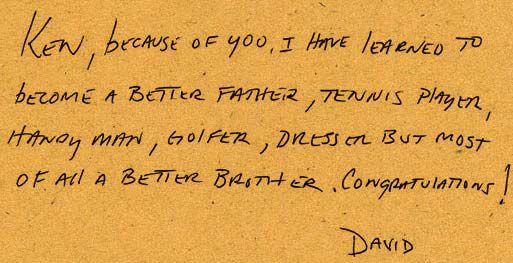 Ken, because of you, I have learned to
become a better father, tennis player,
handy man, golfer, dresser but most
of all a better brother. Congratulations!
David